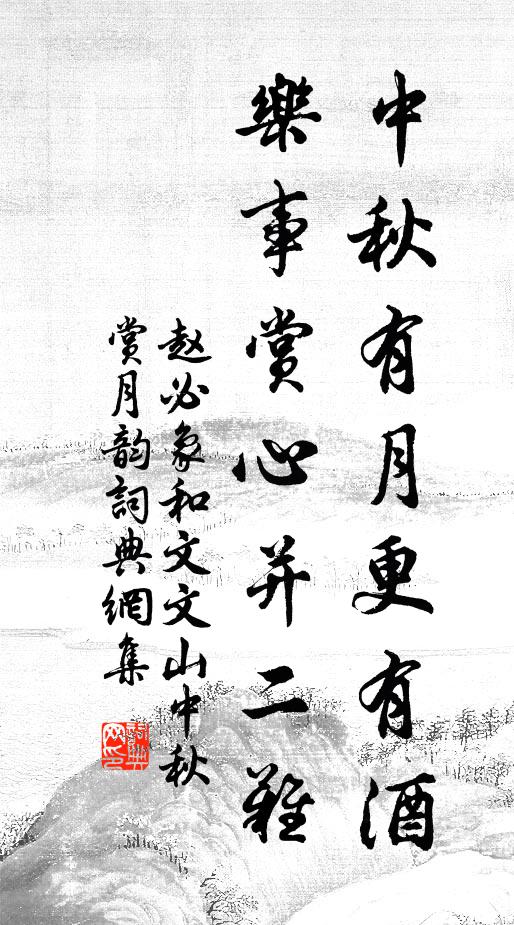 中秋有月更有酒
樂事賞心并二難
赵必象和文文山中秋
賞月韵詞典網集
詞典网印